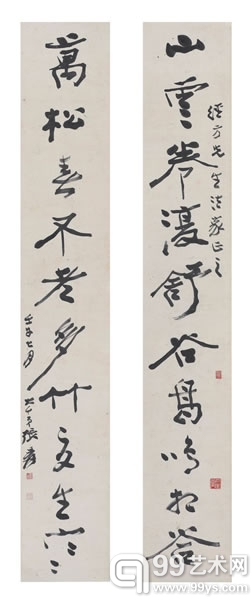 山雲卷復舒谷鳥鳴相答
經方先生法家正之
萬松春不老多竹夏生寒
七月 大千弟張爰
99艺术网
www.99ys.com